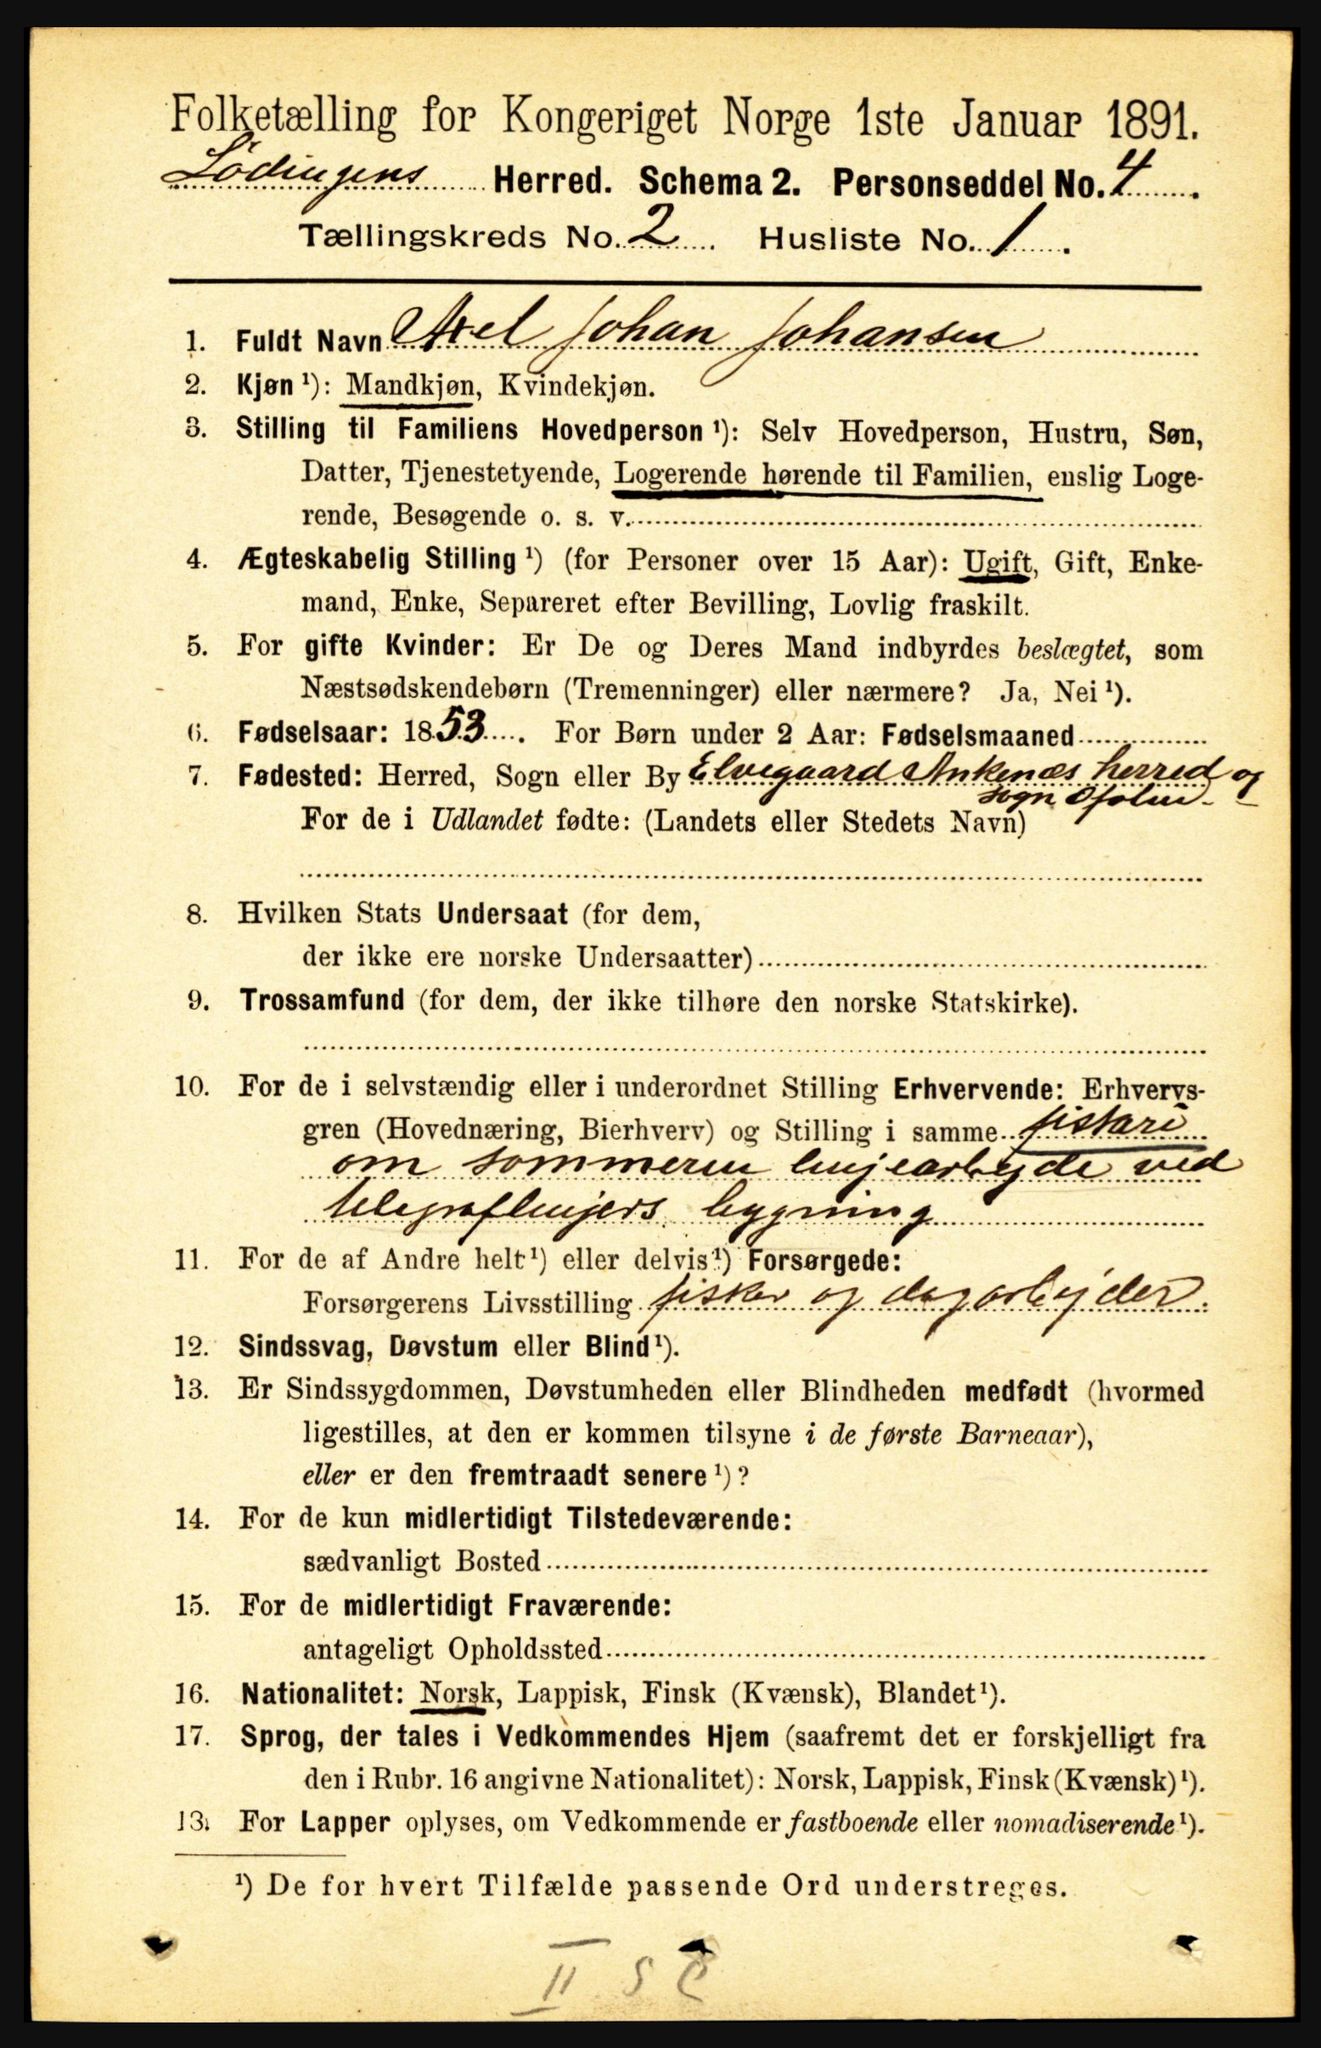 Folketælling for Kongeriget Norge 1ste Januar 1891.
Lødingens Herred. Schema 2. Personseddel No. 4.
Tællingskreds No. 2. Husliste No. 1.
1. Fuldt Navn Axel Johan Johansen
2. Kjøn ¹): Mandkjøn, Kvindekjøn.
3. Stilling til Familiens Hovedperson ¹): Selv Hovedperson, Hustru, Søn,
Datter, Tjenestetyende, Logerende hørende til Familien, enslig Loge-
rende, Besøgende o. s. v.
4. Ægteskabelig Stilling ¹) (for Personer over 15 Aar): Ugift, Gift, Enke-
mand, Enke, Separeret efter Bevilling, Lovlig fraskilt.
5. For gifte Kvinder: Er De og Deres Mand indbyrdes beslægtet, som
Næstsødskendebørn (Tremenninger) eller nærmere? Ja, Nei ¹).
6. Fødselsaar: 1853. For Børn under 2 Aar: Fødselsmaaned
7. Fødested: Herred, Sogn eller By Elvegaard Ankenæs herred og
sogn Ofoten
For de i Udlandet fødte: (Landets eller Stedets Navn)
8. Hvilken Stats Undersaat (for dem,
der ikke ere norske Undersaatter)
9. Trossamfund (for dem, der ikke tilhøre den norske Statskirke).
10. For de i selvstændig eller i underordnet Stilling Erhvervende: Erhvervs-
gren (Hovednæring, Bierhverv) og Stilling i samme fiskari
om sommeren linjearbejde ved
telegraflinjers bygning
11. For de af Andre helt ¹) eller delvis ¹) Forsørgede:
Forsørgerens Livsstilling fisker og dagarbejder.
12. Sindssvag, Døvstum eller Blind ¹).
13. Er Sindssygdommen, Døvstumheden eller Blindheden medfødt (hvormed
ligestilles, at den er kommen tilsyne i de første Barneaar),
eller er den fremtraadt senere ¹)?
14. For de kun midlertidigt Tilstedeværende:
sædvanligt Bosted
15. For de midlertidigt Fraværende:
antageligt Opholdssted
16. Nationalitet: Norsk, Lappisk, Finsk (Kvænsk), Blandet ¹).
17. Sprog, der tales i Vedkommendes Hjem (saafremt det er forskjelligt fra
den i Rubr. 16 angivne Nationalitet): Norsk, Lappisk, Finsk (Kvænsk) ¹).
13. For Lapper oplyses, om Vedkommende er fastboende eller nomadiserende ¹).
¹) De for hvert Tilfælde passende Ord understreges.
II